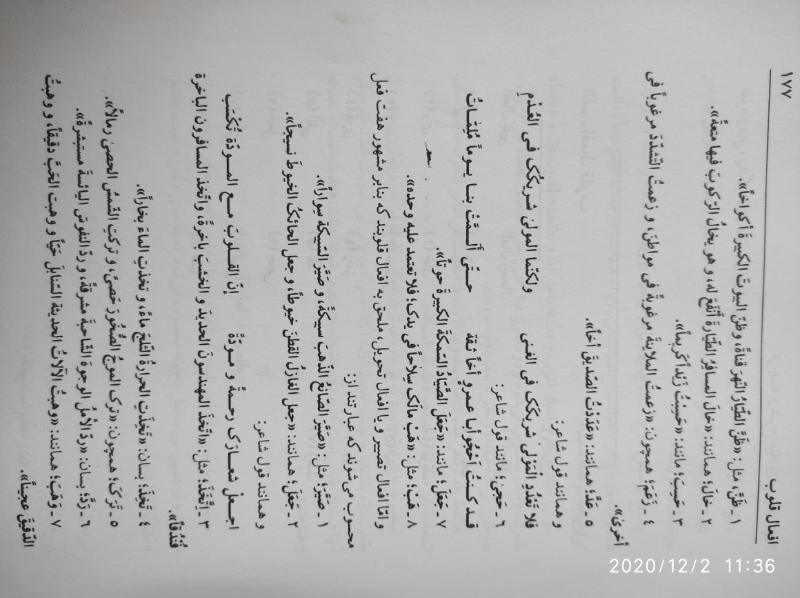 افعال قلوب
۱۷۷
۱ ـ ظَنَّ، مثل: «ظَنَّ الطَّیّارُ النّهرَ قناةً، وظَنَّ البیوتَ الکبیرةَ أکواخاً».
۲ ـ خالَ؛ همانند: «خالَ المسافرُ الطّیّارةَ أنْفَعَ له، و هو یخالُ الرّکوبَ فیها متعةً».
۳ ـ حَسِبَ؛ مانند: «حَسِبْتُ زَیْداً کَرِیماً».
۴ ـ زَعَمَ؛ همچون: «زعمتُ الملاینةَ مرغوبةً فی مواطنَ، و زعمتُ التّشدّدَ مرغوباً فی
أُخریٰ».
۵ ـ عَدَّ؛ همانند: «عَدَدْتُ الصّدیقَ أخاً».
و همانند قول شاعر:
فَلا تَعْدُدِ الْمَوْلیٰ شریکَکَ فی الغنی ولکنّما المولیٰ شریکُکَ فی العُدْمِ
۶ ـ حَجیٰ؛ مانند قول شاعر:
قد کنتُ أحْجُو أبا عمروٍ أخاً ثقة حتّی ألَمَّتْ بنا یوماً مُلِمّاتُ
۷ ـ جَعَلَ؛ مانند: «جَعَلَ الصَّیّادُ السّمکةَ الکبیرةَ حوتاً».
۸ ـ هَبْ؛ مثل: «هَبْ مالَکَ سِلاحاً فی یدک؛ فلا تعتمد علیه وحده».
و امّا افعال تصییر و یا افعال تحویل، ملحق به افعال قلوبند که بنابر مشهور هفت فعل
محسوب می‌شوند که عبارتند از:
۱ ـ صَیَّرَ؛ مثل: «صَیَّرَ الصّائغُ الذّهبَ سبیکةً، و صَیَّرَ السّبیکةَ سِواراً».
۲ ـ جَعَلَ؛ همانند: «جعل الغازلُ القطنَ خیوطاً، و جعل الحائکُ الخیوطَ نسیجاً».
و همانند قول شاعر:
اجعلْ شعارَکَ رحمةً و مودّةً إنّ القلوبَ مع المودّة تُکْسَب
۳ ـ اِتَّخَذَ؛ مثل: «اتّخذَ المهندسونَ الحدیدَ و الخشبَ باخرةً، و اتّخذ المسافرون الباخرةَ
فُنْدُقاً».
۴ ـ تَخِذَ، بسان: «تَخِذَتِ الحرارةُ الثّلجَ ماءً، و تخذتِ الماءَ بخاراً».
۵ ـ تَرَکَ؛ همچون: «ترک الموجُ الصُّخُورَ حَصیً، و ترکتِ الشّمسُ الحصیٰ رمالاً».
۶ ـ رَدَّ؛ بسان: «ردَّ الأملُ الوجوهَ الشّاحبةَ مشرقةً، و ردّ النفوسَ الیائسةَ مستبشرةً».
۷ ـ وَهَبَ؛ همانند: «وهبتْ الآلاتُ الحدیثةُ السّنابلَ حَبّاً و وهبت الحَبَّ دقیقاً، و وهبتْ
الدّقیقَ عجیناً».
2020/12/2 11:36